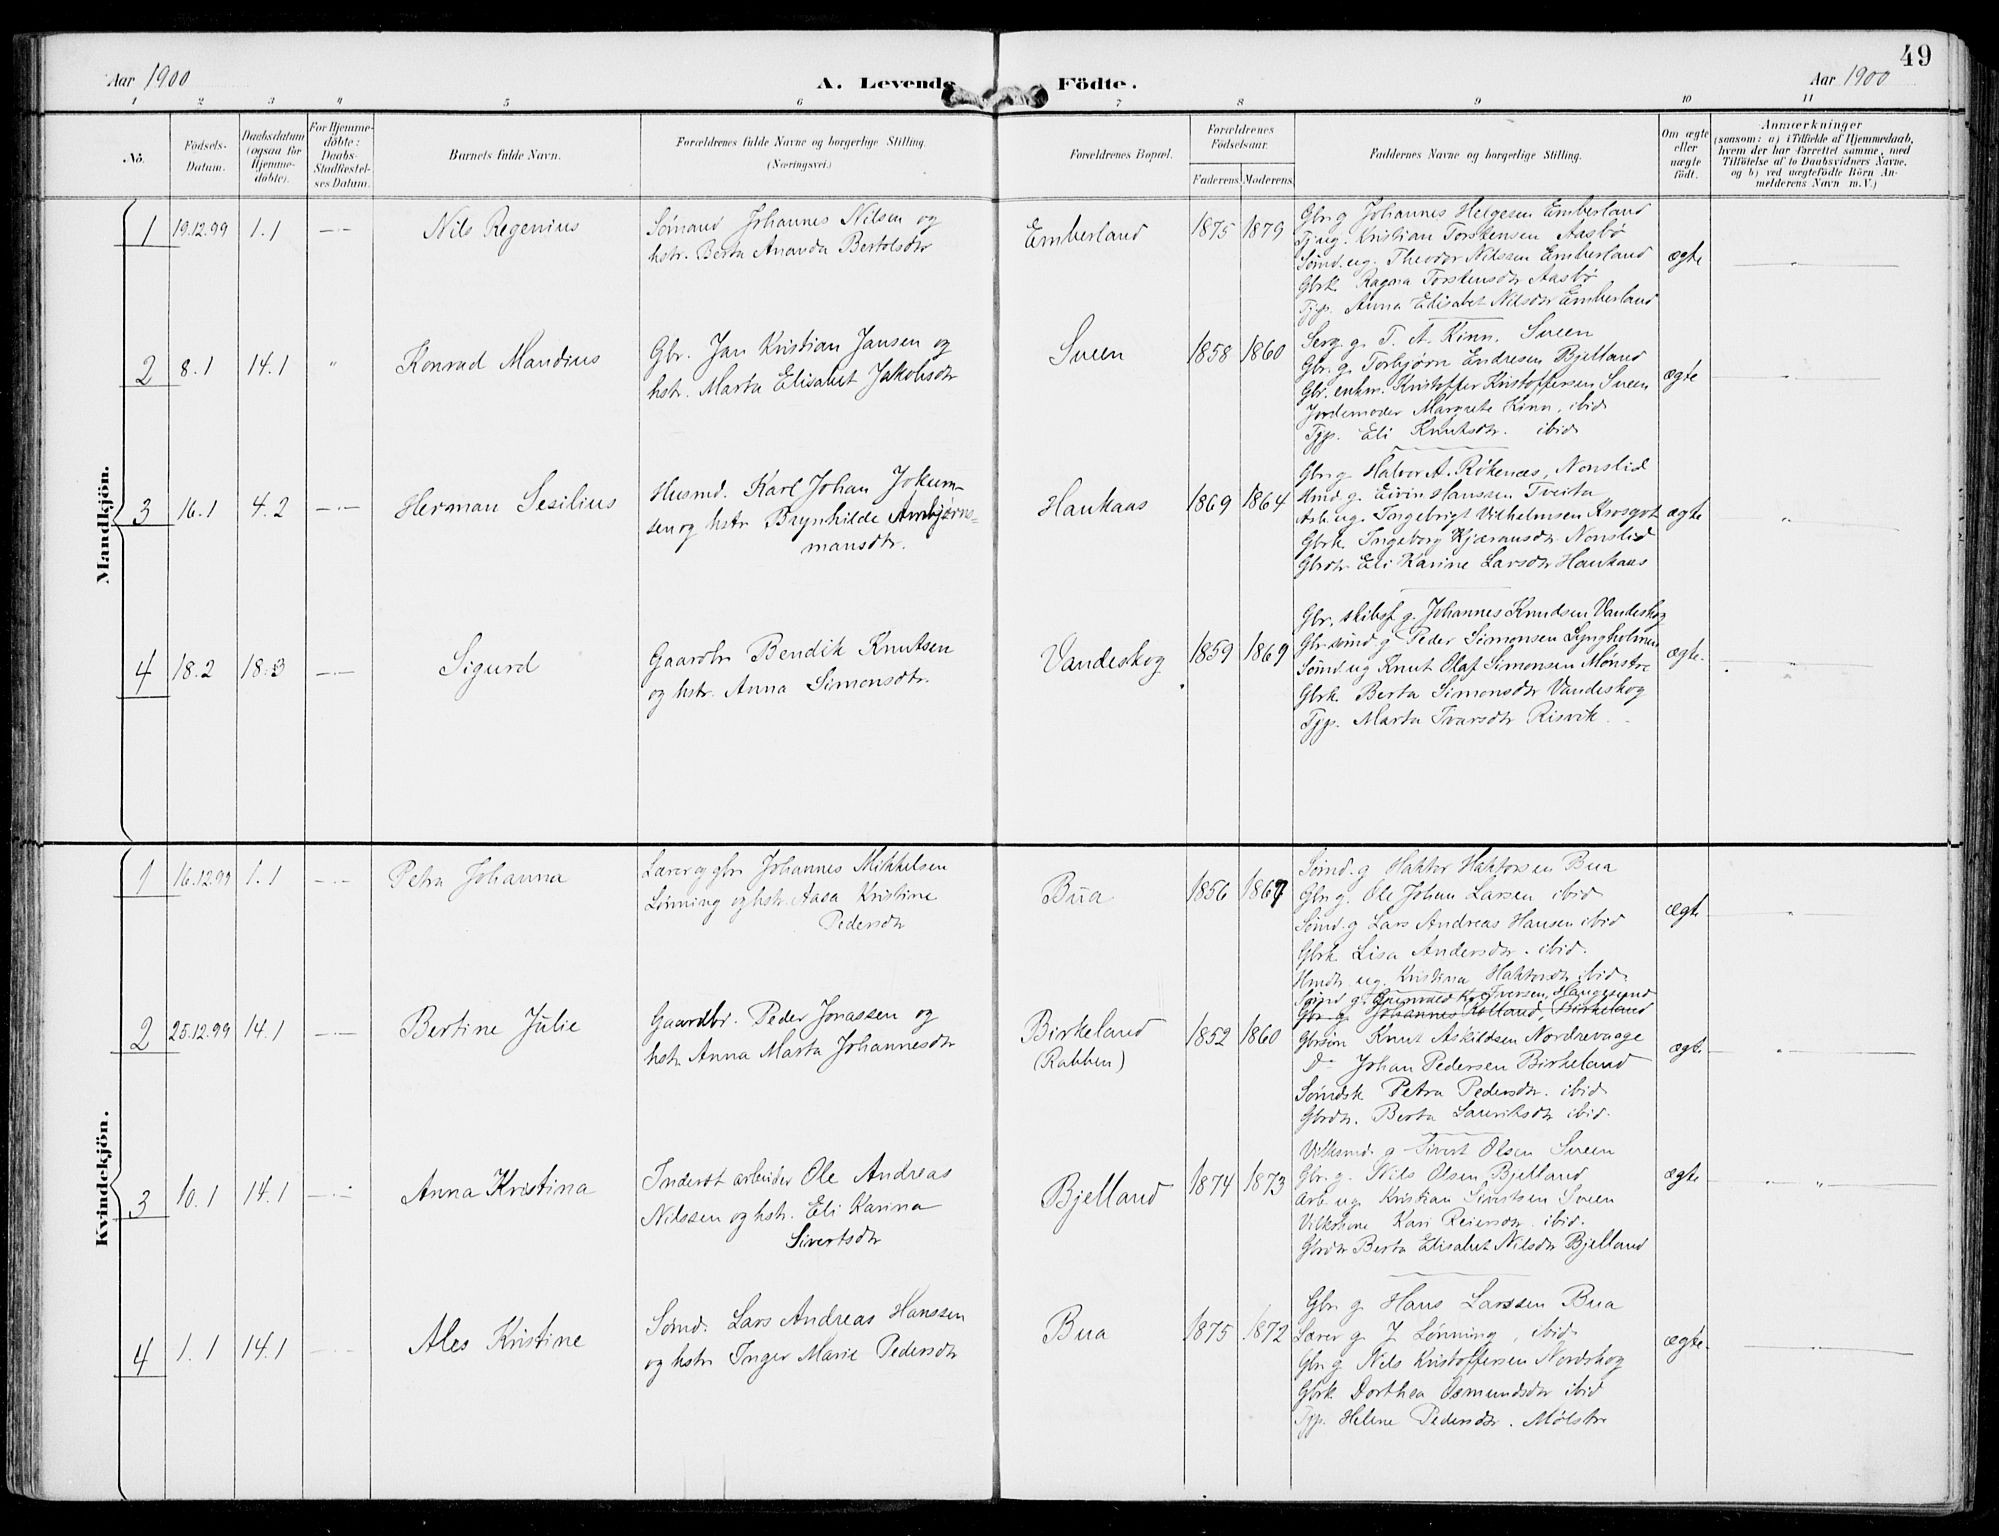 49
Aar 1900
A. Levende Födte.
Aar 1900
1 2 3 4 5 6 7 8 9 10 11
No.
Födsels-
Datum.
Daabsdatum
(ogsaa for
Hjemme-
döbte).
For Hjemme-
döbte:
Daabs-
Stadfæstel-
ses Datum.
Barnets fulde Navn.
Forældrenes fulde Navne og borgerlige Stilling.
(Næringsvei.)
Forældrenes Bopæl.
Forældrenes
Födselsaar.
Faderens.
Moderens.
Faddernes Navne og borgerlige Stilling.
Om ægte
eller
uægte
födt.
Anmærkninger
(saasom: a) i Tilfælde af Hjemmedaab,
hvem der har forrettet samme, med
Tilföielse af to Daabsvidners Navne,
og b) ved uægtefödte Börn An-
melderens Navn m. V.)
Mandkjön.
1 19.12.99 1.1 Nils Regenius
Sømand Johannes Nilsen og
hstr. Berta Ananda Bertolsdtr
Emberland 1875 1879
Gbr g Johannes Helgesen Emberland
Tj ug. Kristian Torstensen Aasbø
Sømd. ug. Theodor Nilssen Emberland
Gbrk Ragna Torstensdtr Aasbø
Tjp. Anna Elisabet Nilsdtr Emberland
ægte
2 8.1 14.1 " Konrad Mandius
Gbr. Jan Kristian Jansen og
hstr. Marta Elisabet Jakobsdtr
Sveen 1858 1860
Serg. g. T. A. Kinn, Sveen
Gbr. g. Torbjørn Endresen Bjelland
Gbr. enkm. Kristoffer Kristoffersen Sveen
Jordemoder Margrete Kinn, ibid
Tjp. Eli Knutsdtr. ibid
ægte
3 16.1 4.2 Herman Sesilius
Husmd. Karl Johan Jokum-
sen og hstr Brynhilde Ambjørns-
mansdtr.
Haukaas 1869 1864
Gbr g Halvor A. Røkenæs, Nonslid
Hmd g. Eivin Hanssen Tveita
Arb ug. Ingebrigt Vilhelmsen
Gbrk Ingeborg Kjæransdtr Nonslid
Gbrdtr Eli Karine Larsdtr Haukaas
ægte
4 18.2 18.3 Sigurd
Gaardbr Bendik Knutsen
og hstr. Anna Simonsdtr.
Vandeskog 1859 1869
Gbr. skibsf g. Johannes Knudsen Vandeskog
Gbr sømd g Peder Simonsen Lyngholmen
Sømd ug Knut Olaf Simonsen Mønstre
Gbrk Berta Simonsdtr Vandeskog
Tjp. Marta Ivarsdtr Risvik.
ægte.
Kvindekjön.
1 16.12.99 1.1 Petra Johanna
Lærer og gbr Johannes Mikkelsen
Lønning og hstr. Aasa Kristine
Pedersdtr
Bua 1856 1867
Sømd. g Haktor Haktorsen Bua
Gbr g. Ole Johan Larsen ibid
Sømd. g Lars Andreas Hansen ibid
Gbrk Lisa Andersdtr. ibid.
Hmdtr ug. Kristina Haktorsdtr ibid.
ægte
2 25.12.99 14.1 Bertine Julie
Gaardbr. Peder Jonassen og
hstr Anna Marta Johannesdtr
Birkeland
(Rabben)
1852 1860
Sømd g. Iversen, Haugesund
Gbr. g. Johannes Kolland, Birkeland
Gbrsøn Knut Askildsen Nordrevaage
Do Johan Pedersen Birkeland
Sømdsk Petra Pedersdtr. ibid
Gbrdtr. Berta Lauriksdtr ibid.
ægte
3 10.1 14.1 Anna Kristina
Inderst arbeider Ole Andreas
Nilssen og hstr. Eli Karina
Sivertsdtr
Bjelland 1874 1873
Vilksmd. g Sivert Olsen Sveen
Gbr. g. Nils Olsen Bjelland
Arb ug. Kristian Sivertsen Sveen
Vilkskone Kari Reiersdtr. ibid.
Gbrdtr Berta Elisabet Nilsdtr Bjelland
ægte
4 1.1 14.1 Ales Kristine
Sømd. Lars Andreas Hanssen
og hstr Inger Marie Pedersdtr
Bua 1875 1872
Gbr g. Hans Larssen Bua
Lærer g. J. Lønning, ibid.
Gbr g Nils Kristoffersen Nordskog
Gbrk Dorthea Osmundsdtr ibid
Tjp. Helene Pedersdtr. Mølstre
ægte.